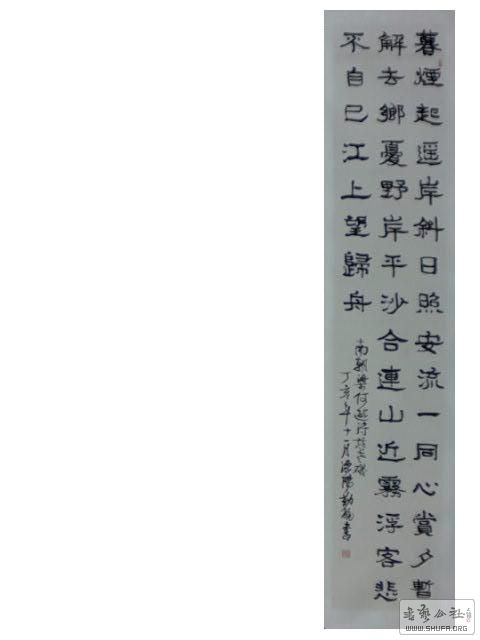 暮煙起遥岸斜日照安流一同心賞夕暫
解去鄉憂野岸平沙合連山近霧浮客悲
不自已江上望歸舟
南朝梁何遜詩
丁亥年十一月書
书艺公社
WWW.SHUFA.ORG